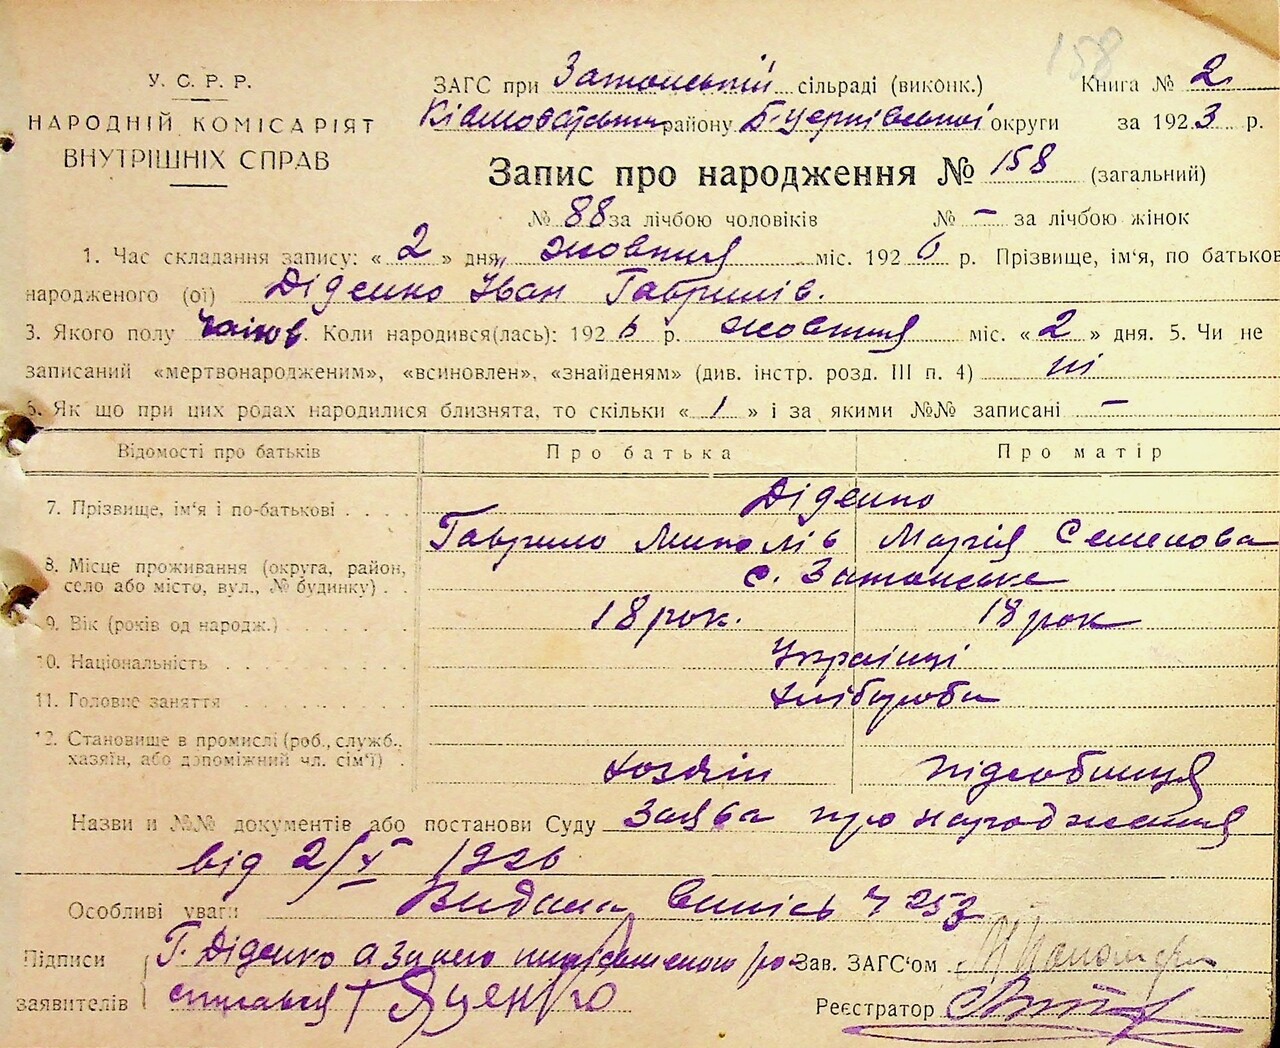 158
У. С. Р. Р.
НАРОДНІЙ КОМІСАРІЯТ
ВНУТРІШНІХ СПРАВ
ЗАГС при Затонській сільраді (виконк.) Книга № 2
району Б-Церківської округи за 1923 р.
Запис про народження № 158 (загальний)
№ 88 за лічбою чоловіків № – за лічбою жінок
1. Час складання запису: « 2 » дня жовтня міс. 1926 р. Прізвище, ім'я, по батькові
народженого (ої) Діденко Іван Гаврилів.
3. Якого полу чолов. Коли народився(лась): 1926 р. жовтня міс. « 2 » дня. 5. Чи не
записаний «мертвонародженим», «всиновлен», «знайденям» (див. інстр. розд. III п. 4) ні
6. Як що при цих родах народилися близнята, то скільки « 1 » і за якими №№ записані –
Відомості про батьків Про батька Про матір
7. Прізвище, ім'я і по-батькові . . . Діденко
Гаврило Миколів Марія Семенова
8. Місце проживання (округа, район, село або місто, вул., № будинку) . . с. Затонське
9. Вік (років од народж.) 18 рок. 18 рок
10. Національність . . . . . . Українці
11. Головне заняття . . . . Хлібороби
12. Становище в промислі (роб., служб., хазяїн, або допоміжний чл. сім'ї) . хозяїн підсобниця
Назви и №№ документів або постанови Суду Заява про народження
від 2/X 1926
Особливі уваги Видана випись Ч 253
Підписи Г. Діденко а за него неписьменого ро- Зав. ЗАГС'ом
заявителів списався Г Яценко Реєстратор